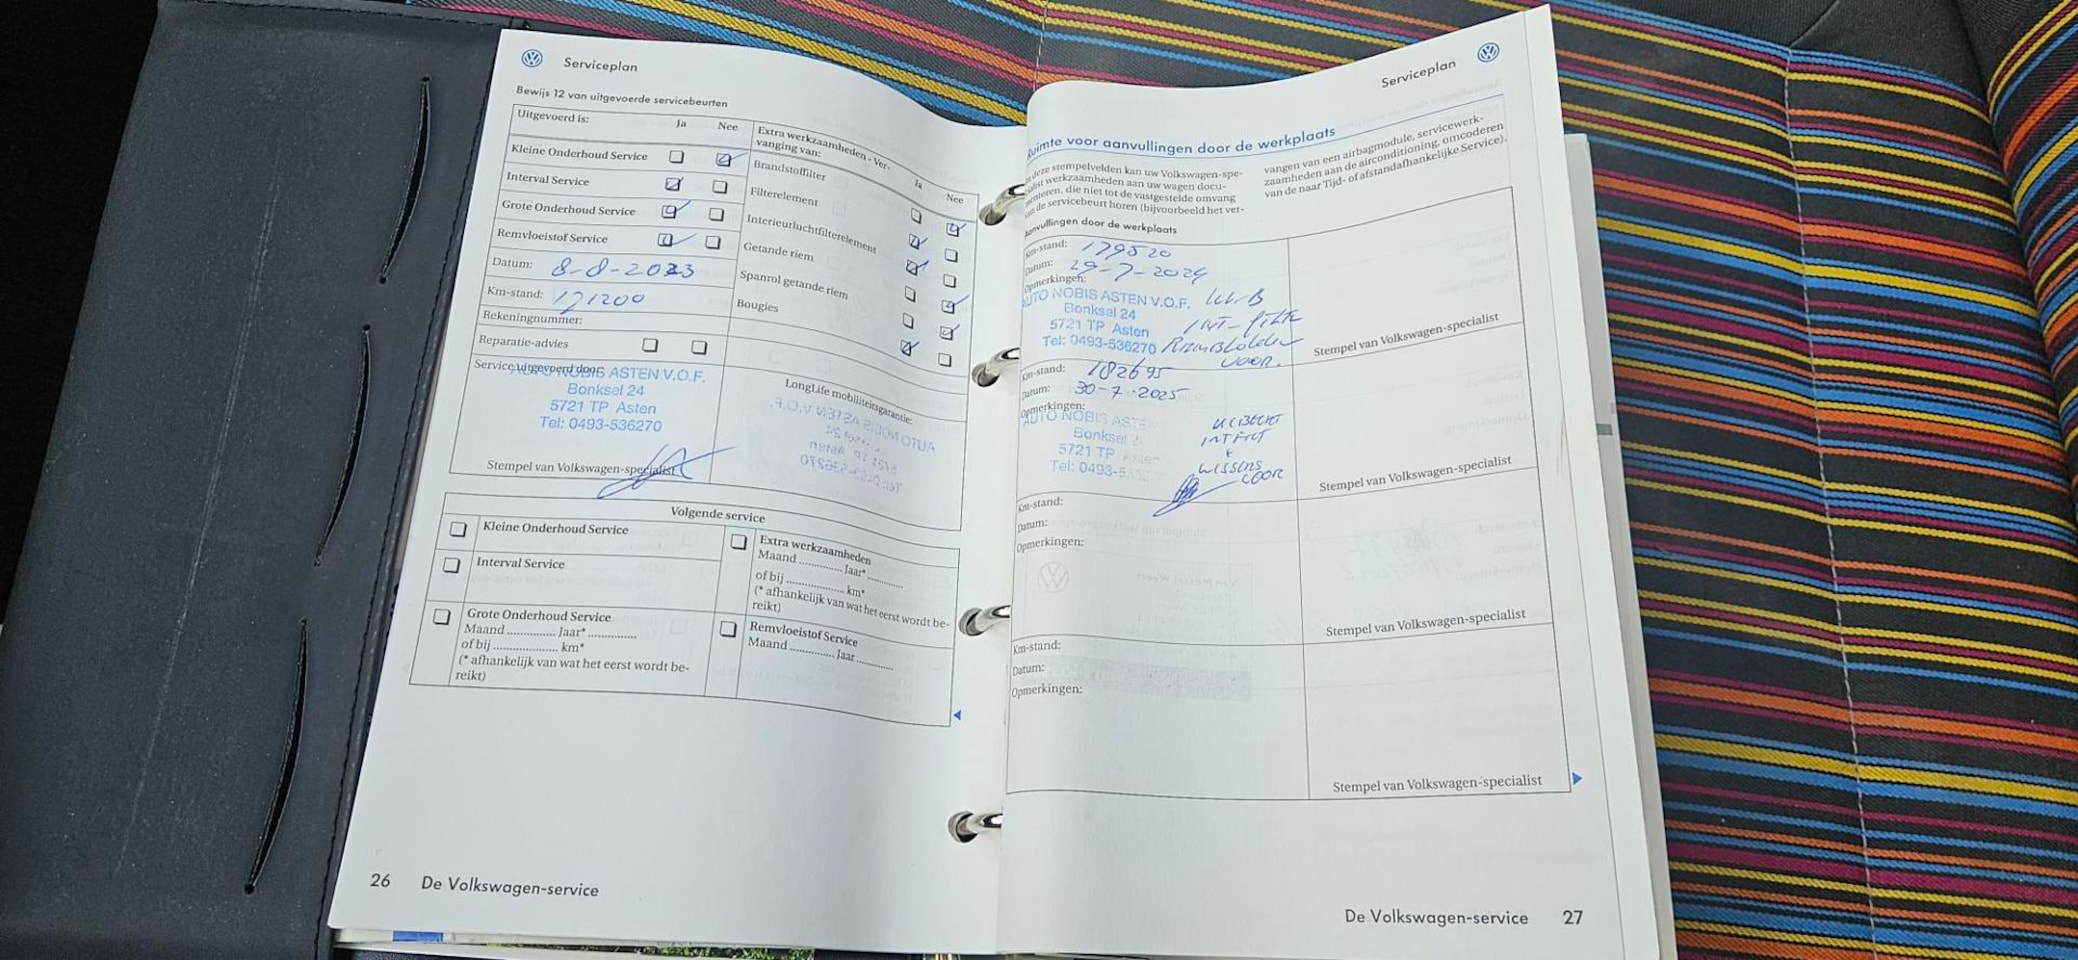 Serviceplan
Bewijs 12 van uitgevoerde servicebeurten
Uitgevoerd is:
Ja
Nee
Kleine Onderhoud Service
Interval Service
Grote Onderhoud Service
Remvloeistof Service
Datum: 8-8-2023
Km-stand: 171200
Rekeningnummer:
Reparatie-advies
Service uitgevoerd door:
AUTO NOBIS ASTEN V.O.F.
Bonksel 24
5721 TP Asten
Tel: 0493-536270
Stempel van Volkswagen-specialist
Extra werkzaamheden - Ver-
vanging van:
Ja
Nee
Brandstoffilter
Filterelement
Interieurluchtfilterelement
Getande riem
Spanrol getande riem
Bougies
LongLife mobiliteitsgarantie:
Volgende service
Kleine Onderhoud Service
Interval Service
Grote Onderhoud Service
Maand .............. Jaar* ..............
of bij .................... km*
(* afhankelijk van wat het eerst wordt be-
reikt)
Extra werkzaamheden
Maand ............. Jaar* ...........
of bij .................. km*
(* afhankelijk van wat het eerst wordt be-
reikt)
Remvloeistof Service
Maand ............. Jaar ...........
26 De Volkswagen-service
Serviceplan
Ruimte voor aanvullingen door de werkplaats
deze stempelvelden kan uw Volkswagen-spe-
cialist werkzaamheden aan uw wagen docu-
menteren, die niet tot de vastgestelde omvang
de servicebeurt horen (bijvoorbeeld het ver-
vangen van een airbagmodule, servicewerk-
zaamheden aan de airconditioning, omcoderen
van de naar Tijd- of afstandafhankelijke Service).
Aanvullingen door de werkplaats
Km-stand: 179520
Datum: 29-7-2024
Opmerkingen:
AUTO NOBIS ASTEN V.O.F.
Bonksel 24
5721 TP Asten
Tel: 0493-536270
INT-filter
Remblokken
voor.
Stempel van Volkswagen-specialist
Km-stand: 182695
Datum: 30-7-2025
Opmerkingen:
AUTO NOBIS ASTEN
Bonksel 2
5721 TP Asten
Tel: 0493-53
Stempel van Volkswagen-specialist
Km-stand:
Datum:
Opmerkingen:
Stempel van Volkswagen-specialist
Km-stand:
Datum:
Opmerkingen:
Stempel van Volkswagen-specialist
De Volkswagen-service 27